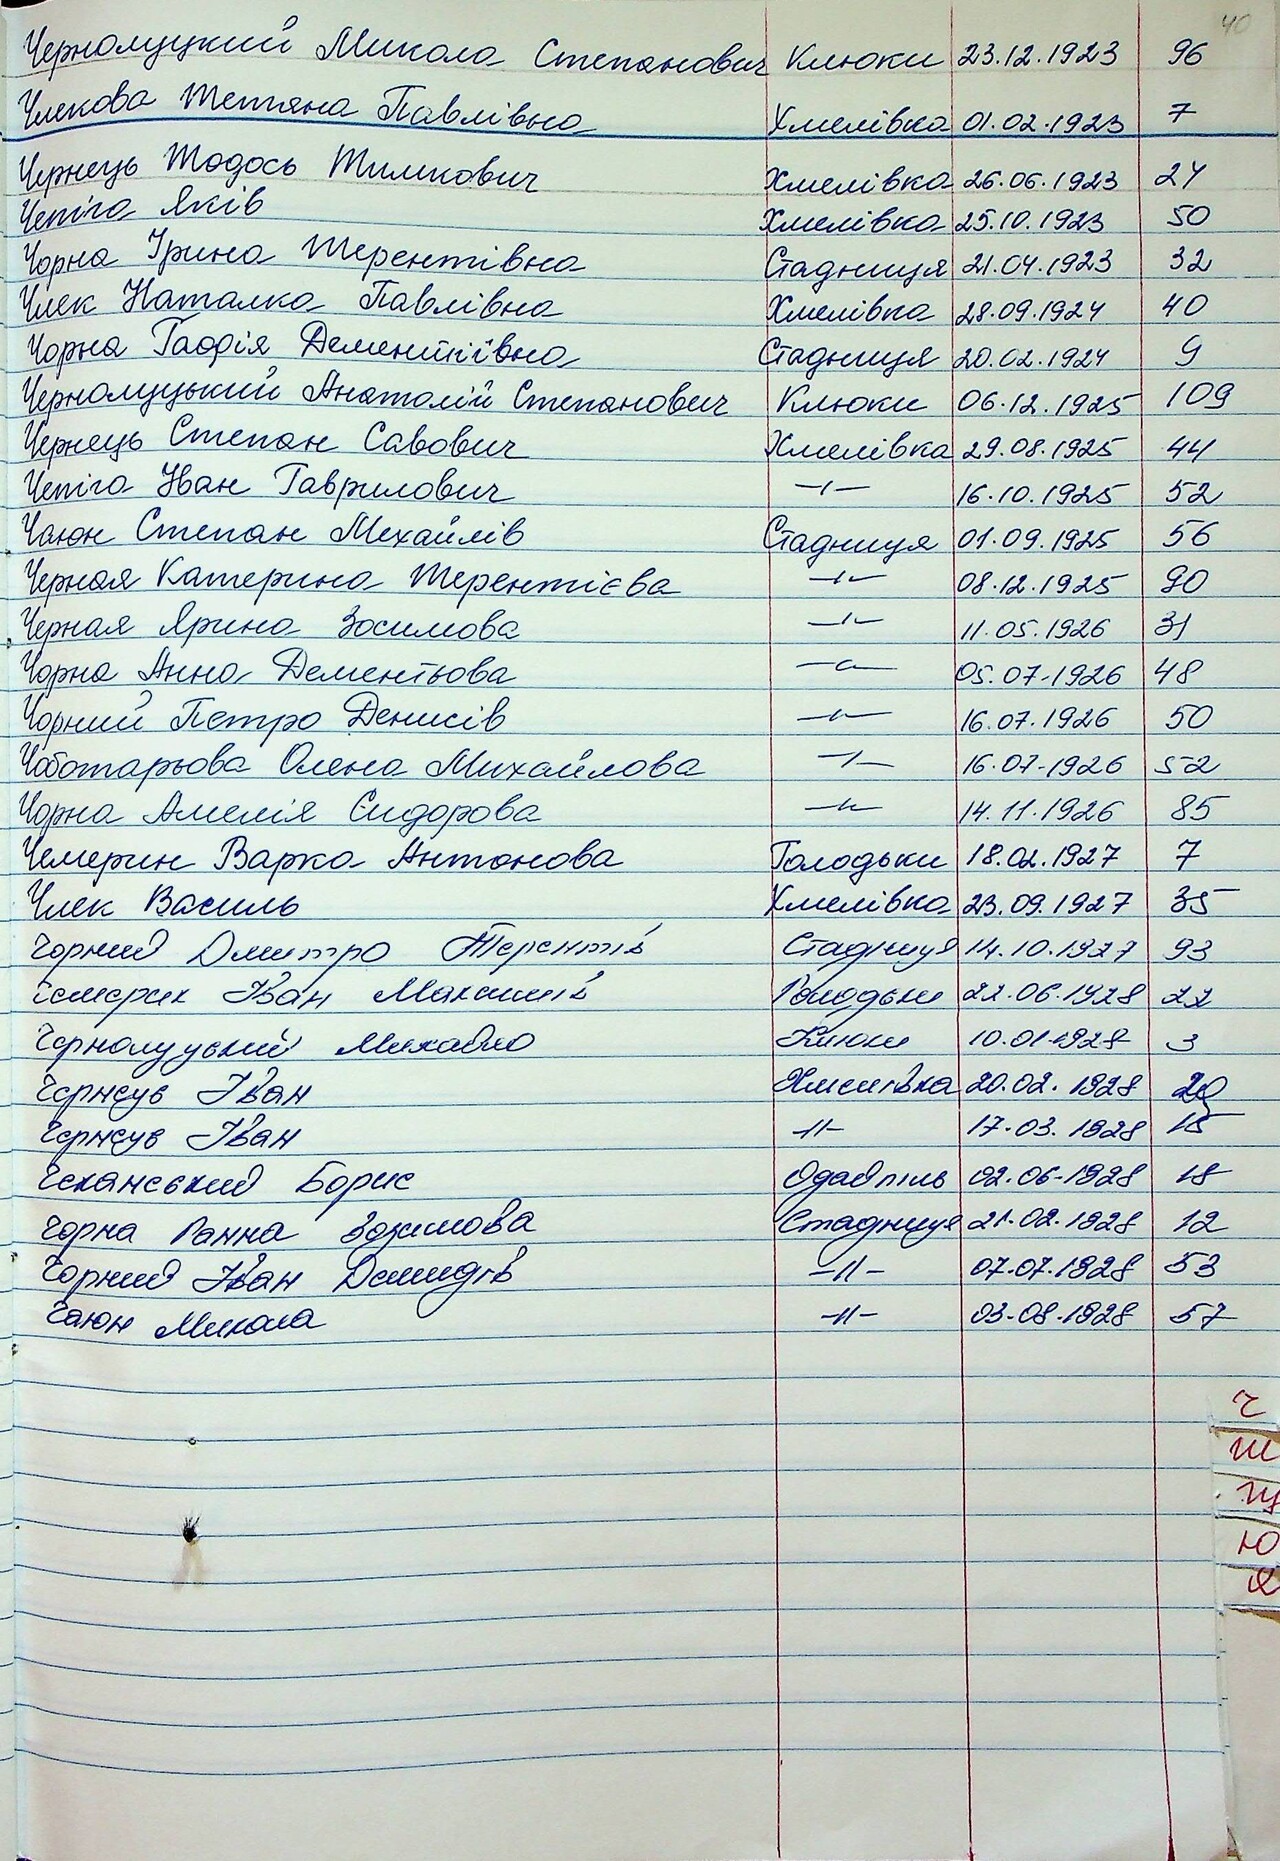 40
Чернолуцкий Микола Степанович Клюки 23.12.1923 96
Члекова Тетяна Павлівна Хмелівка 01.02.1923 7
Чернець Тодось Тимкович Хмелівка 26.06.1923 24
Чепіга Яків Хмелівка 25.10.1923 50
Чорна Ірина Терентівна Стадниця 21.04.1923 32
Члек Наталка Павлівна Хмелівка 28.09.1924 40
Чорна Гафія Дементіївна Стадниця 20.02.1924 9
Чернолуцький Анатолій Степанович Клюки 06.12.1925 109
Чернець Степан Савович Хмелівка 29.08.1925 44
Чепіга Іван Гаврилович –ı– 16.10.1925 52
Чаюн Степан Михайлів Стадниця 01.09.1925 56
Черная Катерина Терентієва –ıı– 08.12.1925 90
Черная Ярина Зосимова –ıı– 11.05.1926 31
Чорна Анна Дементьова –ıı– 05.07.1926 48
Чорний Петро Денисів –ıı– 16.07.1926 50
Чоботарьова Олена Михайлова –ı– 16.07.1926 52
Чорна Амелія Сидорова –ıı– 14.11.1926 85
Чемерин Варка Антонова Голодьки 18.02.1927 7
Члек Василь Хмелівка 23.09.1927 35
Чорний Дмитро Терентів Стадниця 14.10.1927 93
Чемерик Іван Максимів Голодьки 22.06.1928 22
Чернолуцький Михайло Клюки 10.01.1928 3
Чернець Іван Хмелівка 20.02.1928
Чернець Іван –ıı– 17.03.1928 15
Чеканський Борис Одайпіль 02.06.1928 18
Чорна Ганна Зозимова Стадниця 21.02.1928 12
Чорний Іван Демидів –ıı– 07.07.1928 53
Чаюн Микола –ıı– 03.08.1928 57
Ч
Ш
Щ
Ю
Я